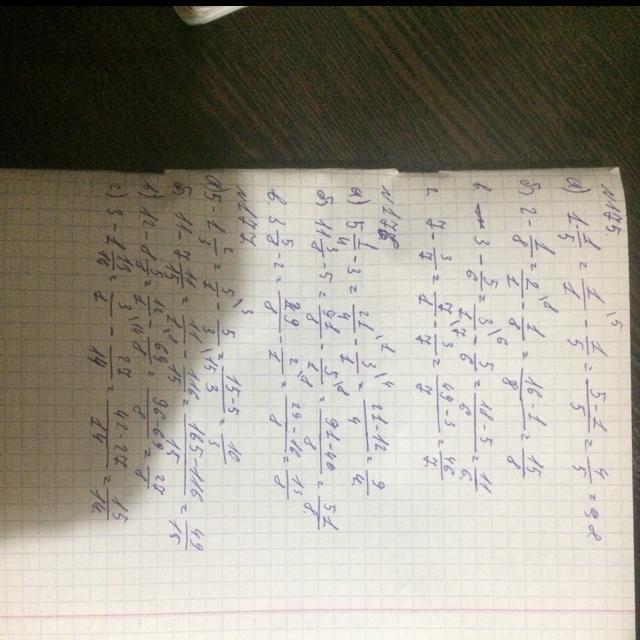 N175.
а) 1-1/5 = 1/1 - 1/5 = 5-1/5 = 4/5 =
б) 2-1/8 = 2/1 - 1/8 = 16-1/8 = 15/8
в 3-5/6 = 3/1 - 5/6 = 18-5/6 =
г 7-3/7 = 7/1 - 3/7 = 49-3/7 = 46/7
N176
а) 5 1/4 - 3 = 21/4 - 3/1 = 21-12/4 = 9/4
б) 11 3/8 - 5 = 91/8 - 5/1 = 91-40/8 = 51/8
в 3 5/8 - 2 = 29/8 - 2/1 = 29-16/8 = 13/8
N177
а) 5 - = 5/1 - 5/3 = 15-5/3 = 10/3
б 11 - 7 = 11/1 - 116/15 = 165-116/15 = 49/15
96-69/8 = 27/8
г) 3 - 1 13/14 = 3/1 - 27/14 = 42-27/14 = 15/14